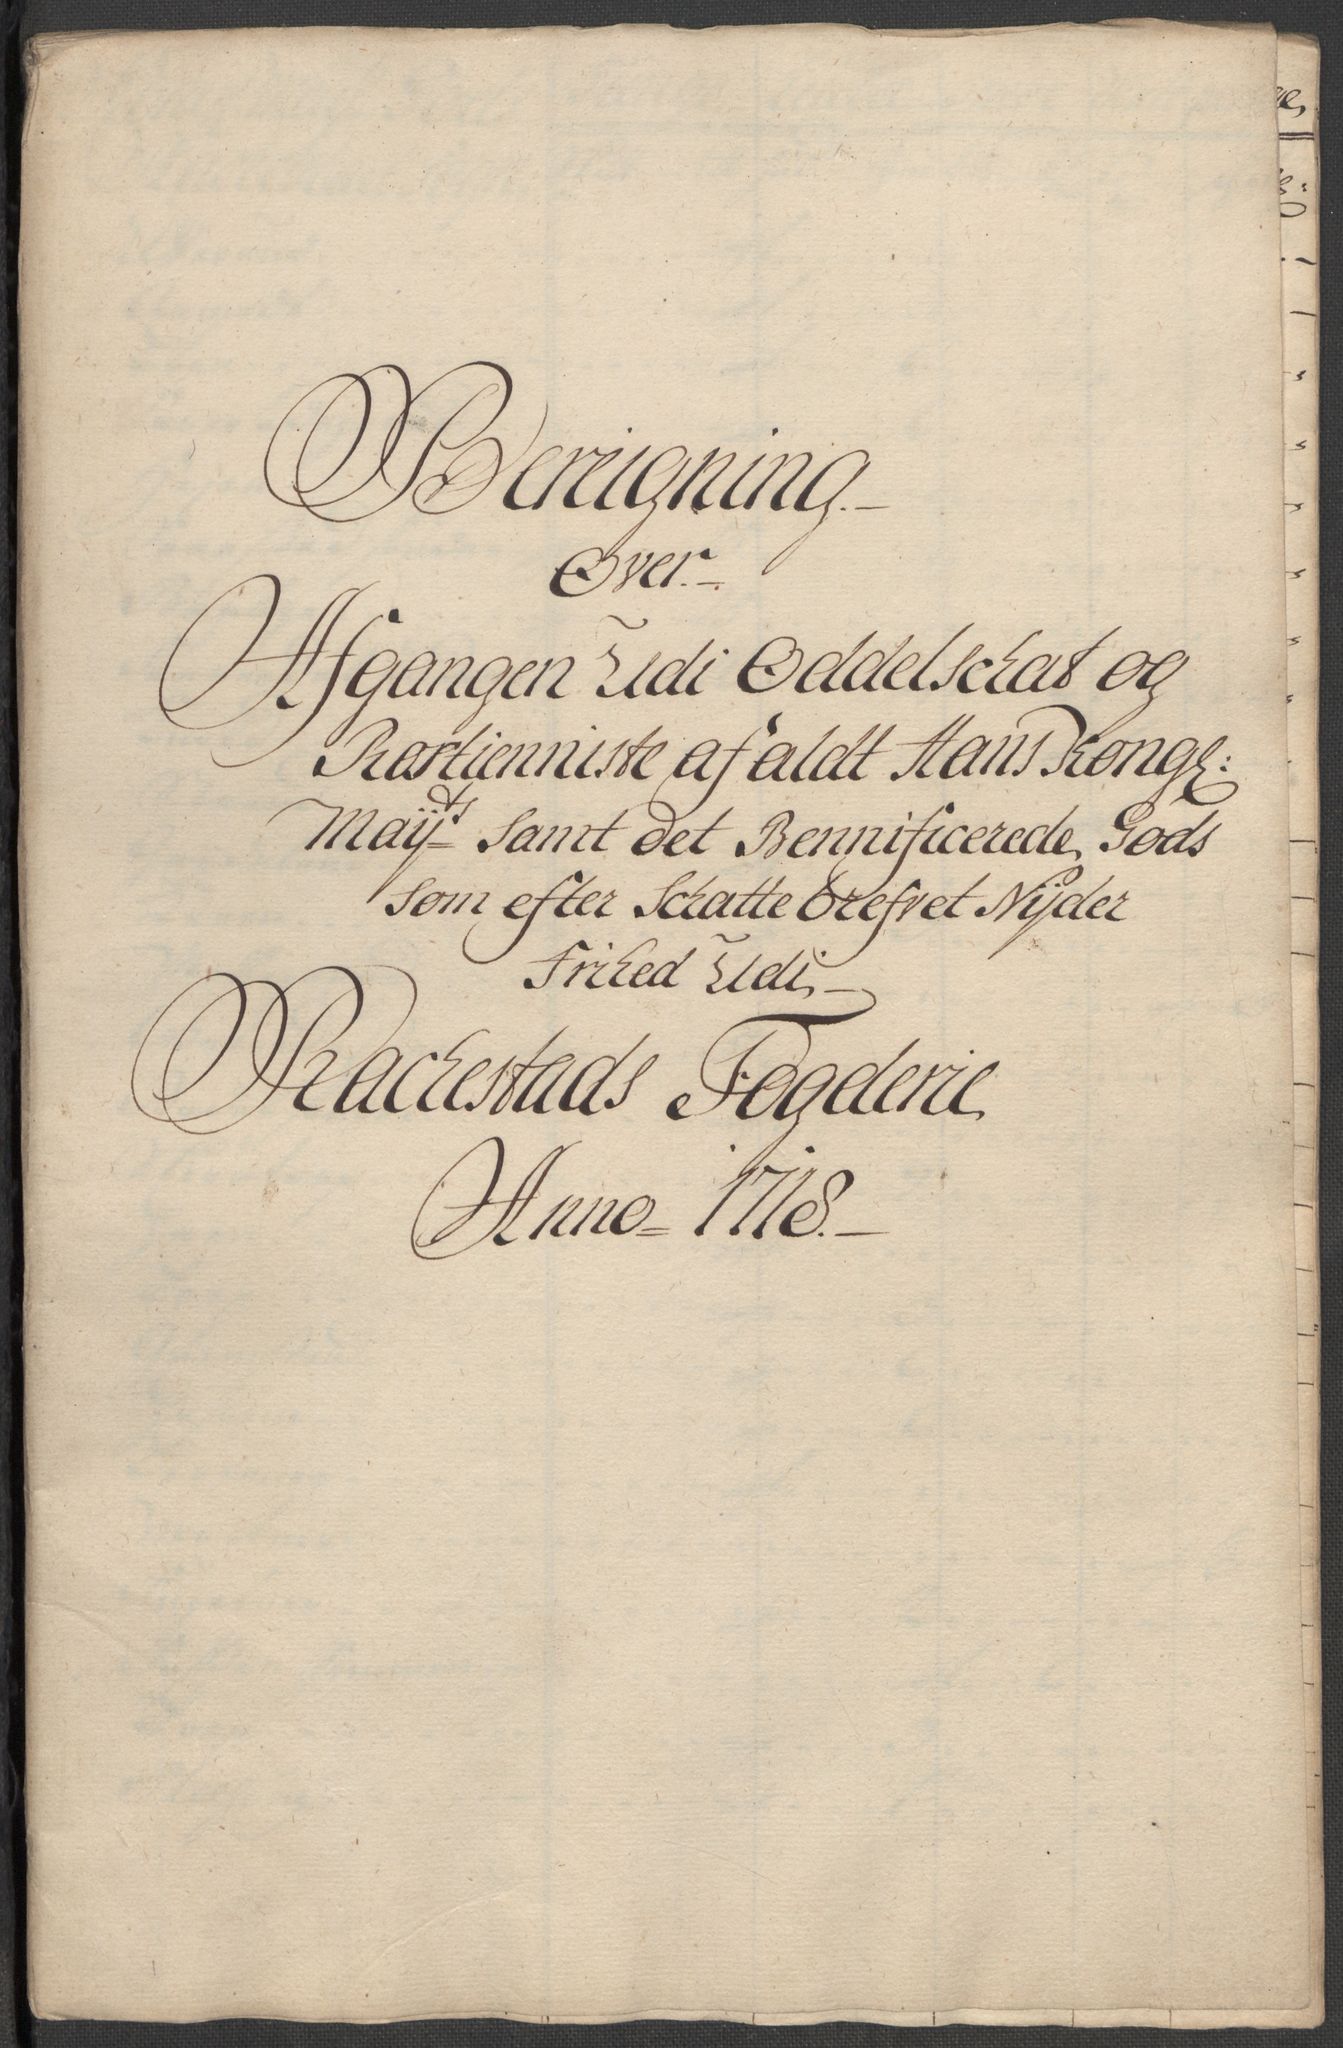 Bereigning.
Over
Afgangen Udi Oddelschat og
Rostienniste af aldt Hans Kongl:
Mayts Samt det Bennificerede Gods
Som efter Schattebrefvet Nyder
Frihed Udi
Rachestads Fogderie
Anno 1718.